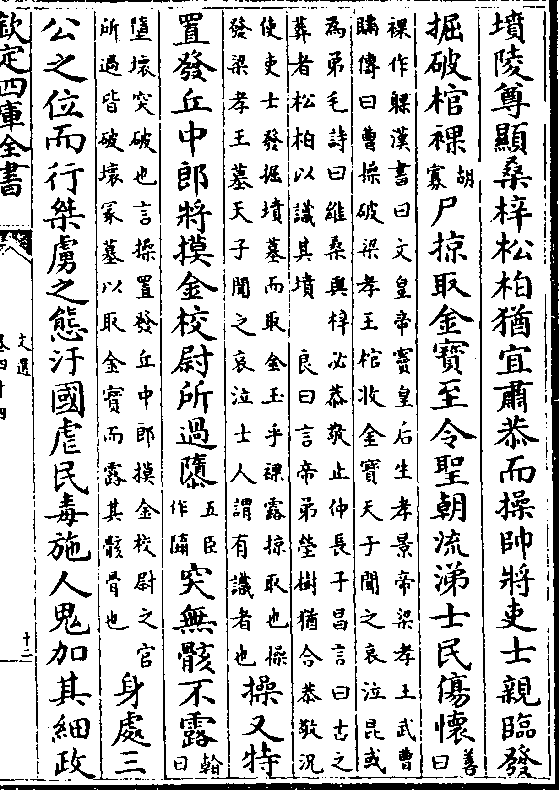 墳陵尊顯桑梓松柏猶宜肅恭而操帥將吏士親臨發
掘破棺裸胡寡尸掠取金寶至令聖朝流涕士民傷懷善曰
裸作躶漢書曰文皇帝竇皇后生孝景帝梁孝王武曹
瞞傳曰曹操破梁孝王棺收金寶天子聞之哀泣昆或
為弟毛詩曰維桑與梓必恭敬止仲長子昌言曰古之
葬者松柏以識其墳 良曰言帝弟塋樹猶合恭敬況
使吏士發掘墳墓而取金玉乎裸露掠取也操
發梁孝王墓天子聞之哀泣士人謂有識者也
操又特
置發丘中郎將摸金校尉所過隳五臣作突無骸不露翰曰
墮壞突破也言操置發丘中郎摸金校尉之官
所過皆破壞冢墓以取金寶而露其骸骨也
身處三
公之位而行桀虜之態汙國虐民毒施人鬼加其細政
欽定四庫全書
文選
卷四十四
十二